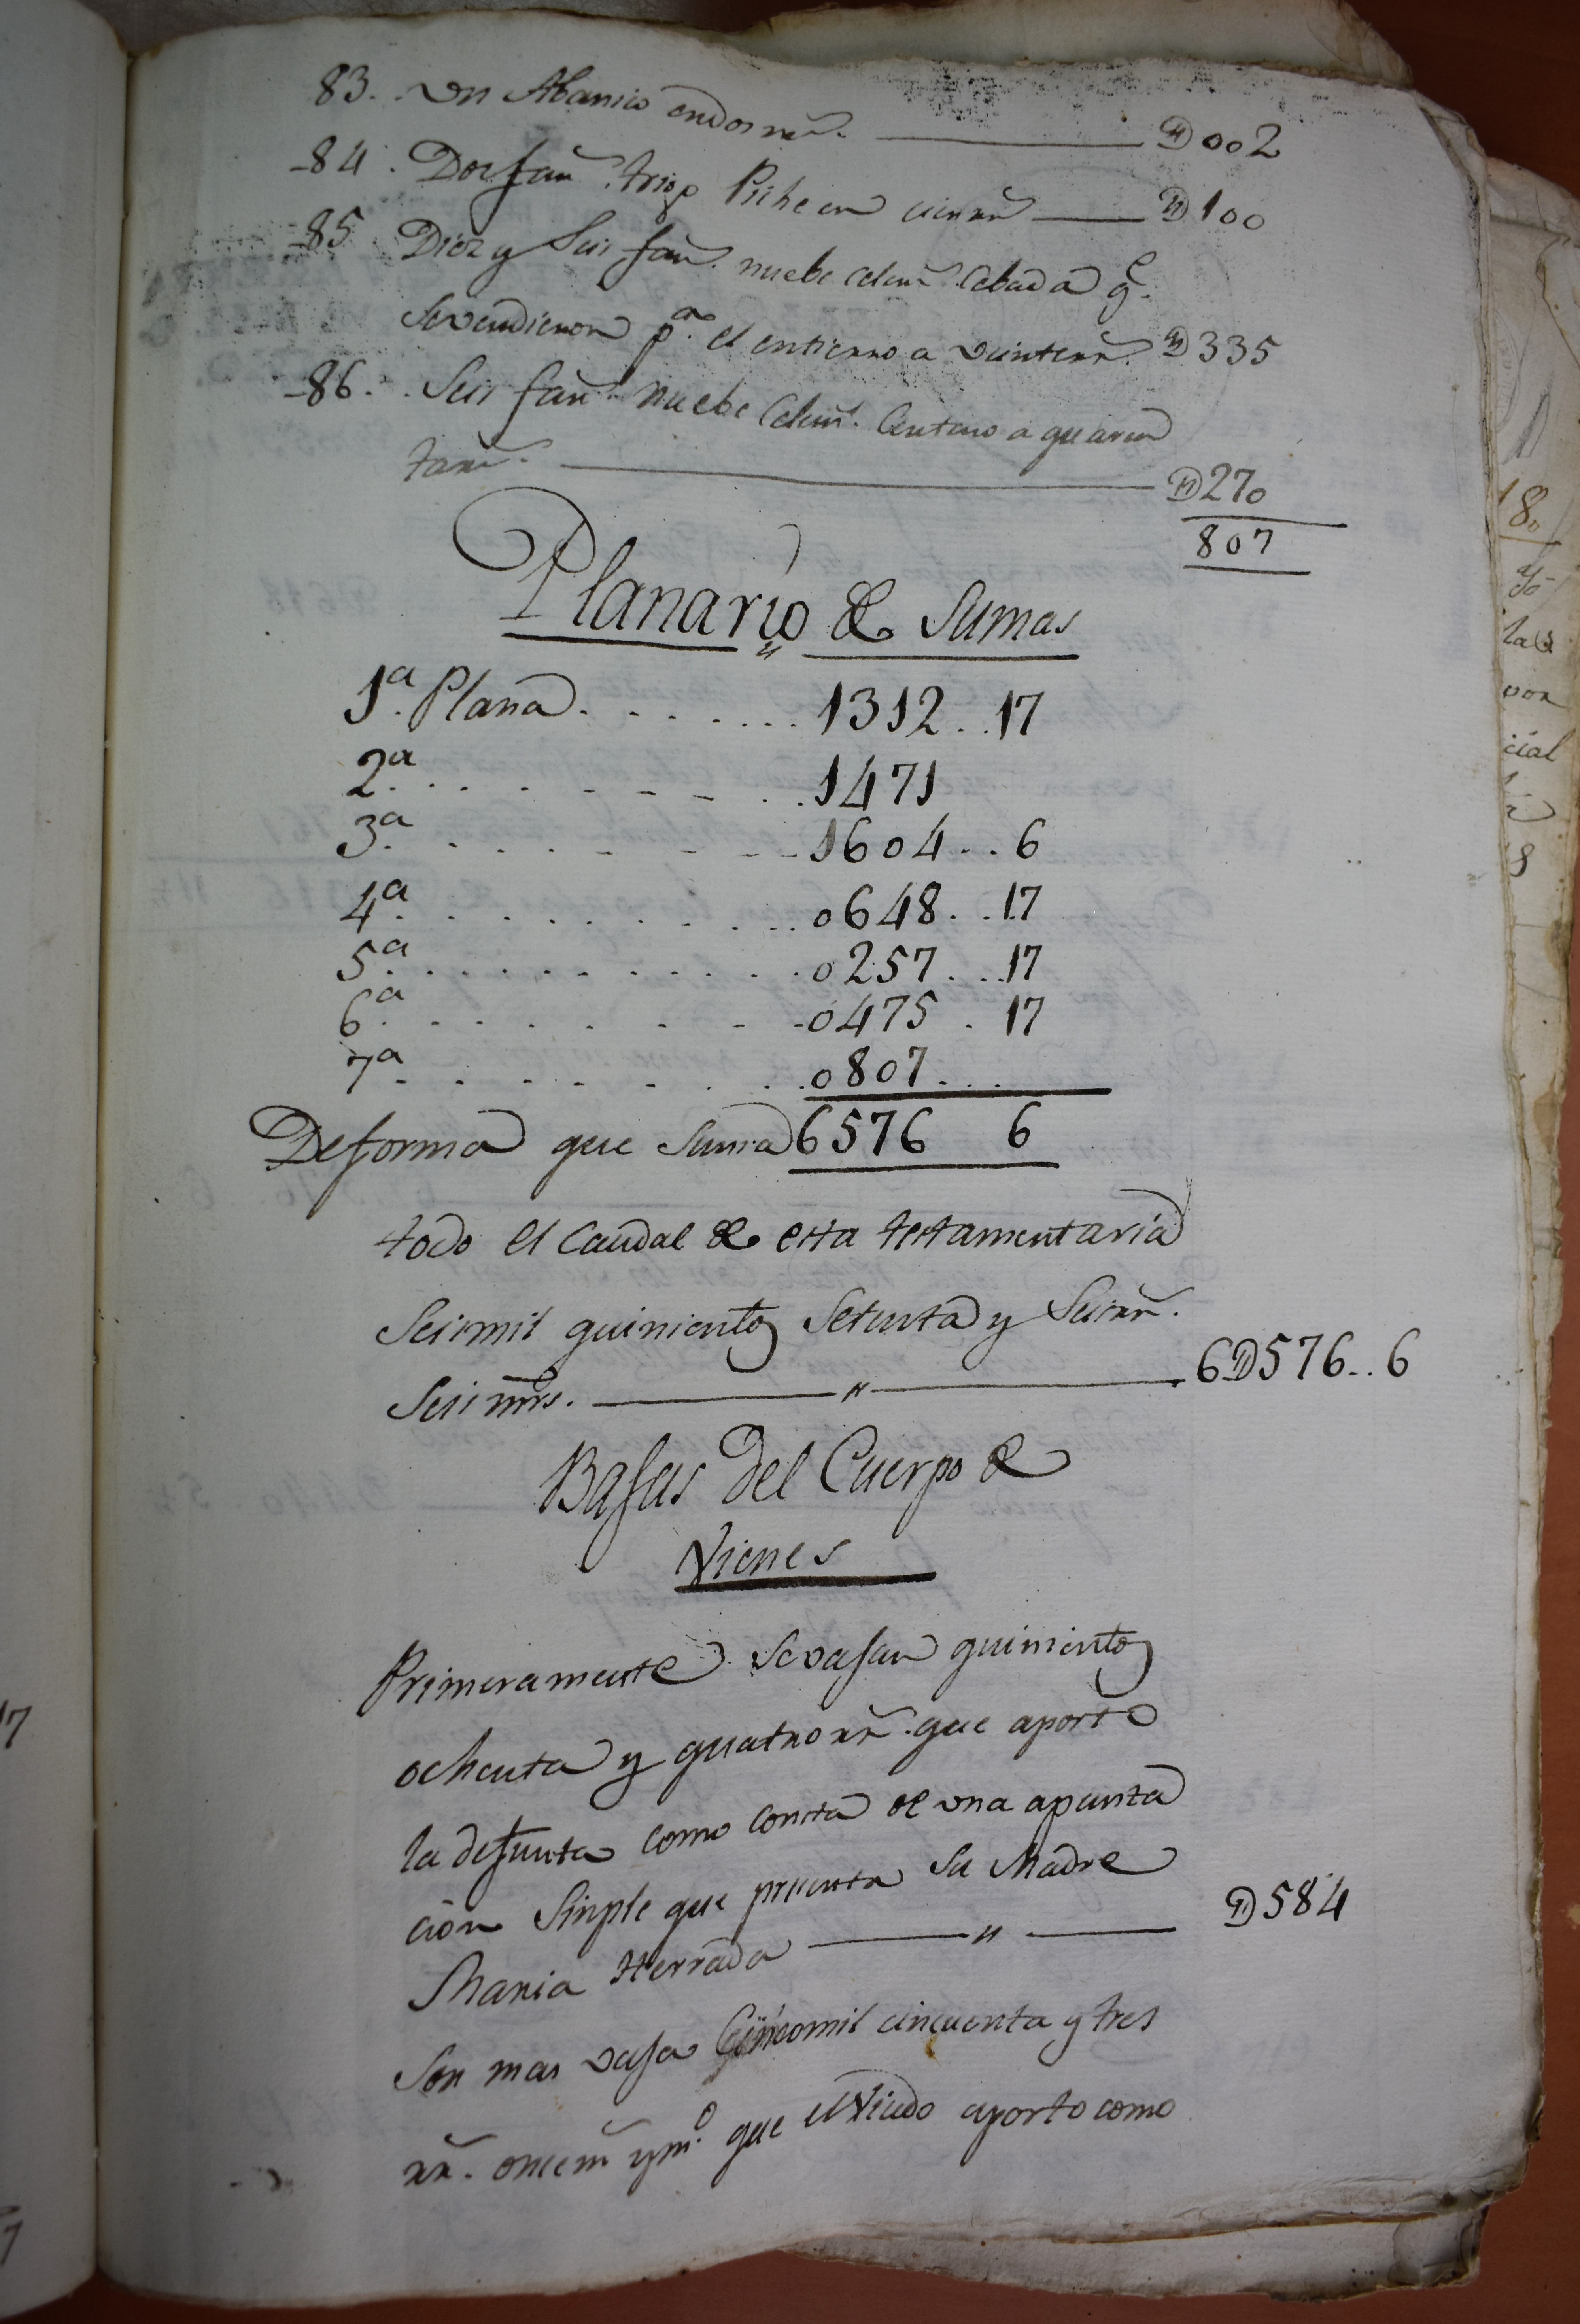 83. Un Abanico en dos rr.ˢ D002
84. Dos fan.ˢ trigo Piche en cien rr.ˢ D100
85 Diez y Seis fan.ˢ nuebe celem.ˢ Cebada q.ᵉ
Se vendieron p.ª el entierro a veinte rr.ˢ D335
86. Seis fan.ˢ nuebe Celem.ˢ Centeno a quaren
ta rr.ˢ D270
807
Planario de Sumas
1.ª Plana . . . . . . . 1312 . . 17
2.ª . . . . . . . . 1471
3.ª . . . . . . . . 1604 . . 6
4.ª . . . . . . . . 0648 . . 17
5.ª . . . . . . . . 0257 . . 17
6.ª . . . . . . . . 0475 . 17
7.ª . . . . . . . . 0807 . . .
De forma que Suma 6576 6
todo el Caudal de esta testamentaria
Seis mil quinientos Setenta y Seis rr.ˢ
Seis mrs. " 6D576 . . 6
Bajas del Cuerpo de
Vienes
Primeramente se vajan quinientos
ochenta y quatro rr.ˢ que aporto
la defunta como consta de una apunta
cion Simple que presenta su Madre
Maria Herrada " D584
Son mas vaja Cinco mil cincuenta y tres
rr.ˢ once m.ˢ y m.º que el Viudo aporto como
17
7
180
las
por
cial
8